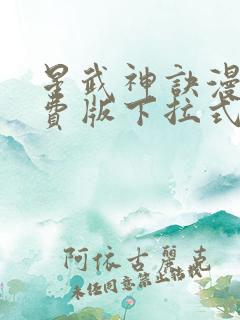 星武神訣漫
費版下拉式
阿依古麗克
未经同意禁止转载